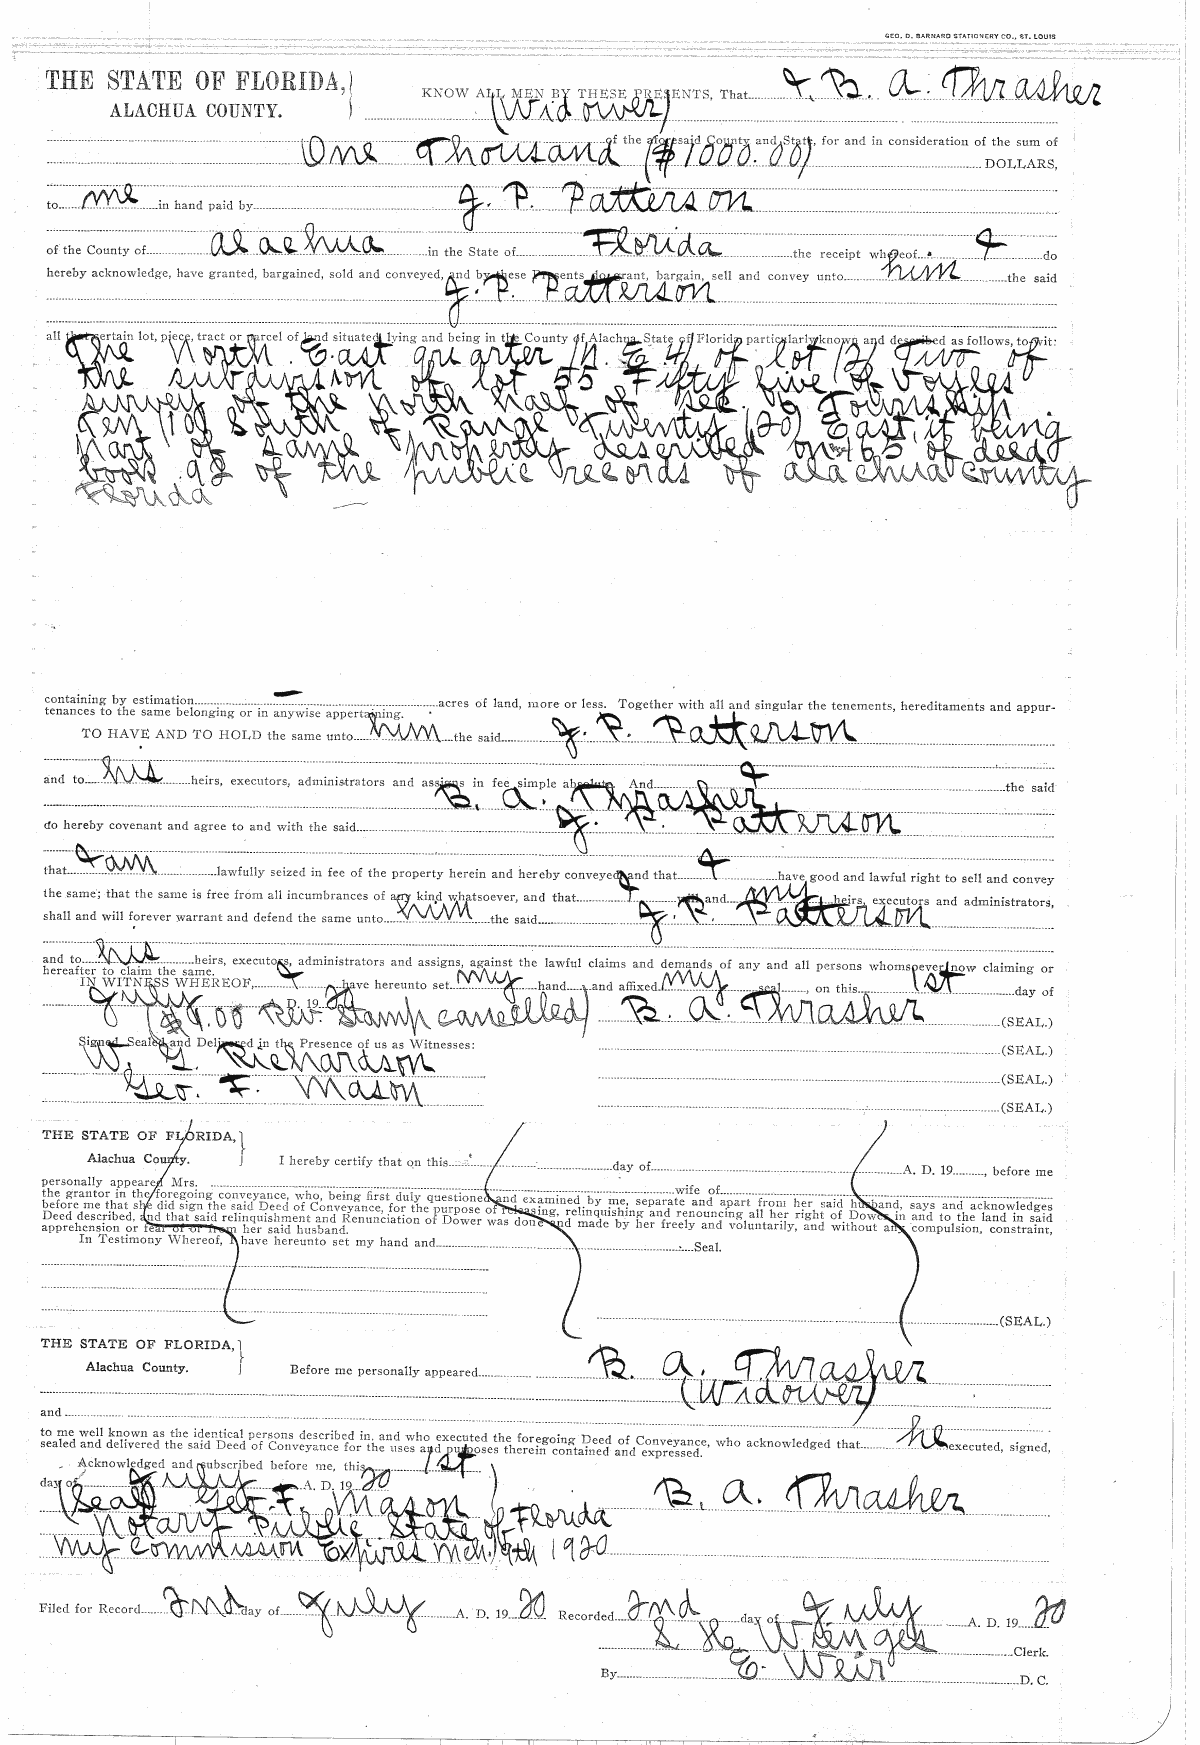 GEO. D. BARNARD STATIONERY CO., ST. LOUIS
THE STATE OF FLORIDA,
ALACHUA COUNTY.
KNOW ALL MEN BY THESE PRESENTS, That I, B. A. Thrasher
(Widower)
of the aforesaid County and State, for and in consideration of the sum of
One Thousand ($1000.00) DOLLARS,
to me in hand paid by J. P. Patterson
of the County of Alachua in the State of Florida the receipt whereof I do
hereby acknowledge, have granted, bargained, sold and conveyed, and by these Presents do grant, bargain, sell and convey unto him the said
J. P. Patterson
all that certain lot, piece, tract or parcel of land situated, lying and being in the County of Alachua, State of Florida particularly known and described as follows, towit:
The North East quarter (N. E. 4) of lot (2) Two of
the subdivision of lot 55 Fifty five of
survey of the north half of Sec. Township
Ten (10) South of Range Twenty (20) East, it being
part of same property described on 165 of deed
book 92 of the public records of Alachua County
Florida
containing by estimation - acres of land, more or less. Together with all and singular the tenements, hereditaments and appur-
tenances to the same belonging or in anywise appertaining.
TO HAVE AND TO HOLD the same unto him the said J. P. Patterson
and to his heirs, executors, administrators and assigns in fee simple absolute. And I the said
B. A. Thrasher
do hereby covenant and agree to and with the said J. P. Patterson
that I am lawfully seized in fee of the property herein and hereby conveyed and that I have good and lawful right to sell and convey
the same; that the same is free from all incumbrances of any kind whatsoever, and that I will and my heirs, executors and administrators,
shall and will forever warrant and defend the same unto him the said J. P. Patterson
and to his heirs, executors, administrators and assigns, against the lawful claims and demands of any and all persons whomsoever now claiming or
hereafter to claim the same.
IN WITNESS WHEREOF, I have hereunto set my hand and affixed my seal, on this 1st day of
July A. D. 1920
($1.00 Rev. Stamp cancelled) B. A. Thrasher (SEAL.)
Signed, Sealed and Delivered in the Presence of us as Witnesses: (SEAL.)
W. G. Richardson (SEAL.)
Geo. F. Mason (SEAL.)
THE STATE OF FLORIDA,
Alachua County. I hereby certify that on this day of A. D. 19, before me
personally appeared Mrs. wife of
the grantor in the foregoing conveyance, who, being first duly questioned and examined by me, separate and apart from her said husband, says and acknowledges
before me that she did sign the said Deed of Conveyance, for the purpose of releasing, relinquishing and renouncing all her right of Dower in and to the land in said
Deed described, and that said relinquishment and Renunciation of Dower was done and made by her freely and voluntarily, and without any compulsion, constraint,
apprehension or fear of or from her said husband.
In Testimony Whereof, I have hereunto set my hand and Seal.
(SEAL.)
THE STATE OF FLORIDA,
Alachua County. Before me personally appeared B. A. Thrasher
(Widower)
and
to me well known as the identical persons described in, and who executed the foregoing Deed of Conveyance, who acknowledged that he executed, signed,
sealed and delivered the said Deed of Conveyance for the uses and purposes therein contained and expressed.
Acknowledged and subscribed before me, this 1st
day of July A. D. 1920
(Seal) Geo. F. Mason B. A. Thrasher
Notary Public State of Florida
My Commission Expires Mch. 9th 1920
Filed for Record 2nd day of July A. D. 1920 Recorded 2nd day of July A. D. 1920
S. H. Wienges Clerk.
By E. Weir D. C.